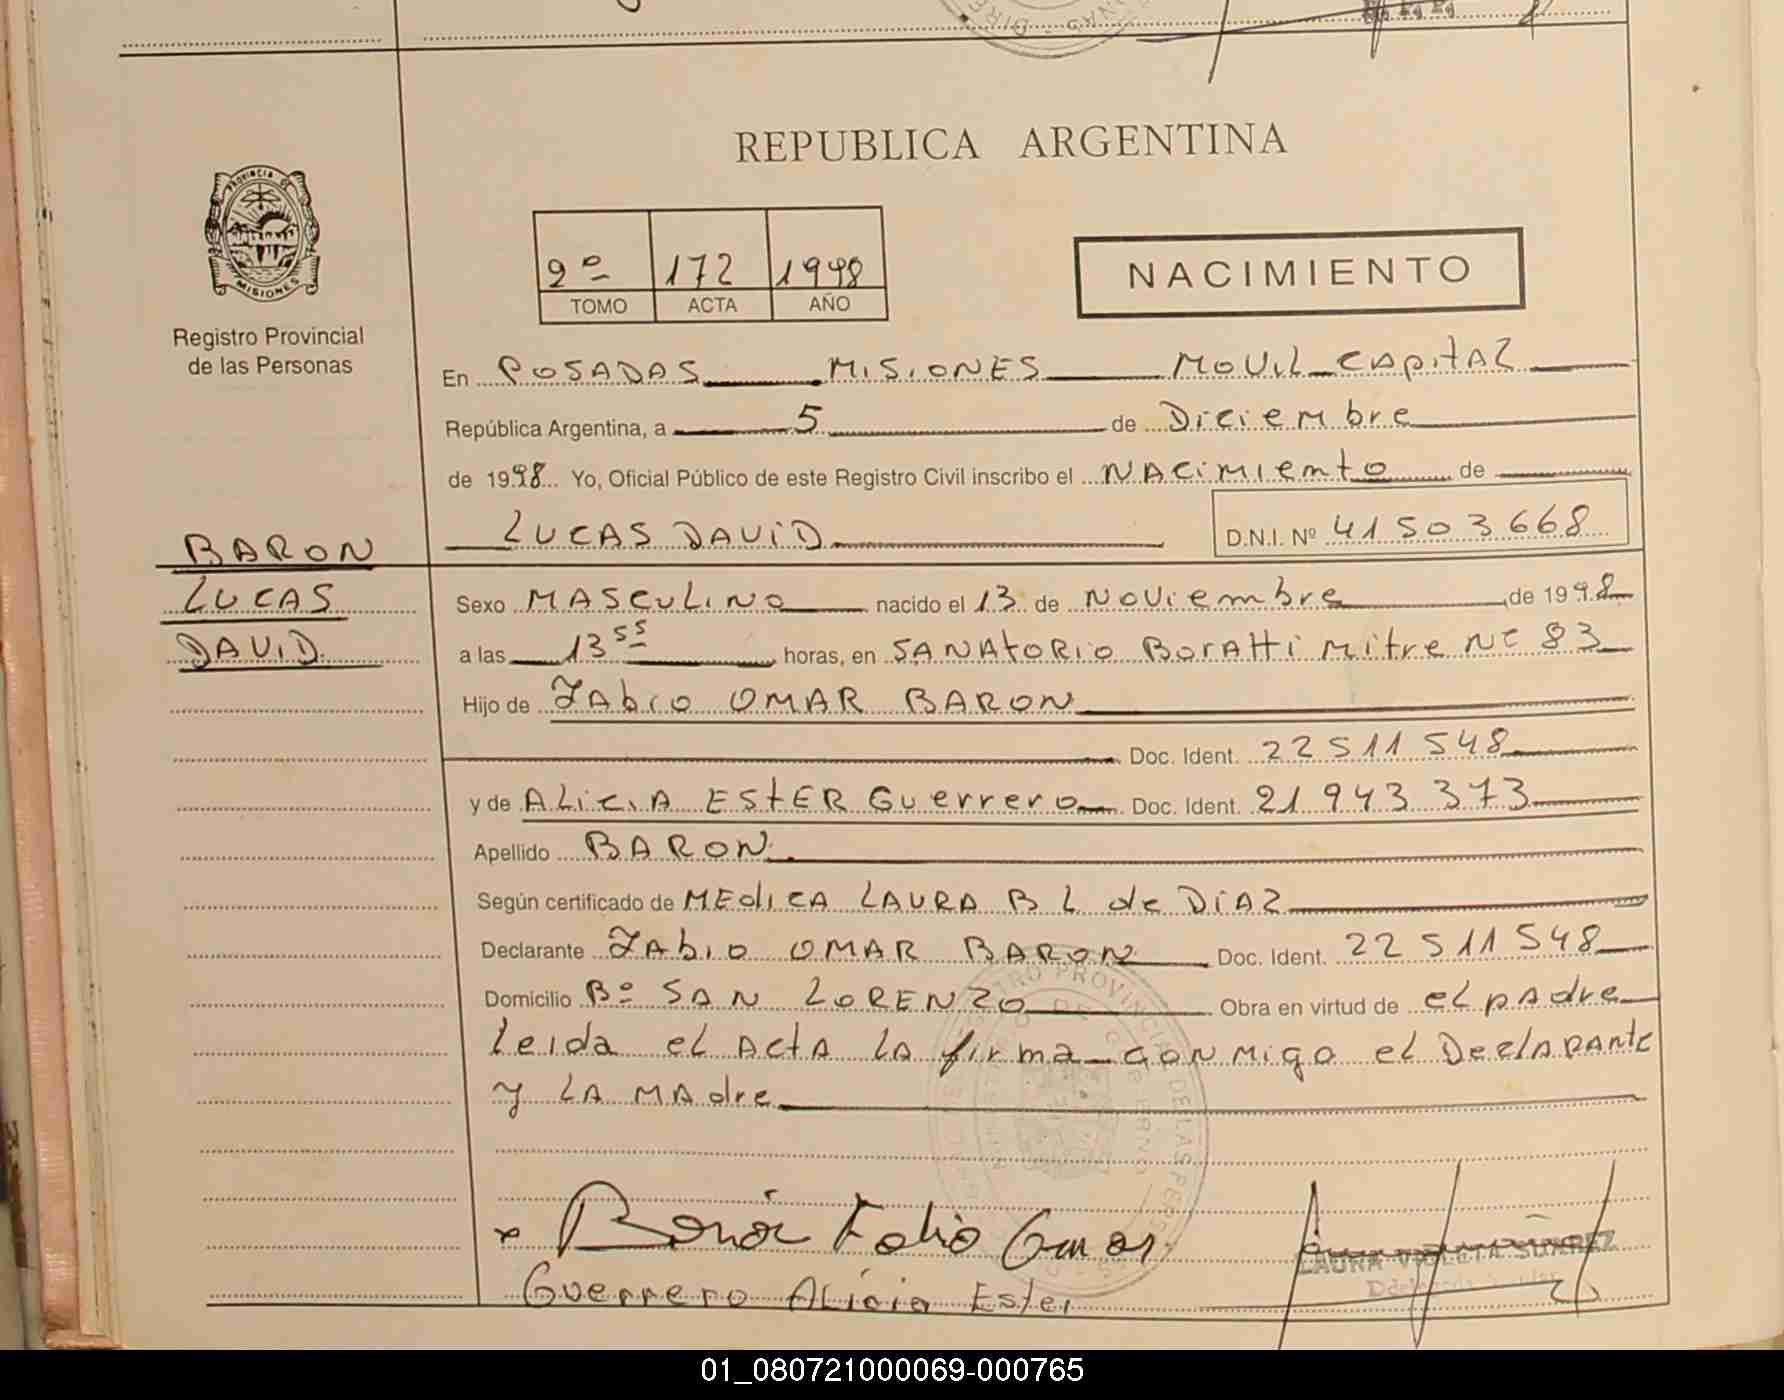 REPUBLICA ARGENTINA
PROVINCIA DE
MISIONES
Registro Provincial
de las Personas
2º 172 1998
TOMO ACTA AÑO
NACIMIENTO
En POSADAS MISIONES MOVIL CAPITAL
República Argentina, a 5 de Diciembre
de 1998 Yo, Oficial Público de este Registro Civil inscribo el NACimiento de
LUCAS DAVID D.N.I. Nº 41503668
BARON
LUCAS
DAVID
Sexo MASCULINO nacido el 13 de Noviembre de 1998
a las 13 55 horas, en SANAtORiO BORAtti Mitre Nº 83
Hijo de FAbio OMAR BARON
Doc. Ident. 22511548
y de ALiCiA EStER Guerrero Doc. Ident. 21943373
Apellido BARON
Según certificado de MEdiCA LAURA B L de DIAZ
Declarante FAbiO OMAR BARON Doc. Ident. 22511548
Domicilio Bº SAN LORENZO Obra en virtud de el padre
Leida el Acta la firma conmigo el Declarante
y LA MAdre
Baron Fabio Omar
Guerrero Alicia Ester
LAURA VIOLETA SUAREZ
01_080721000069-000765